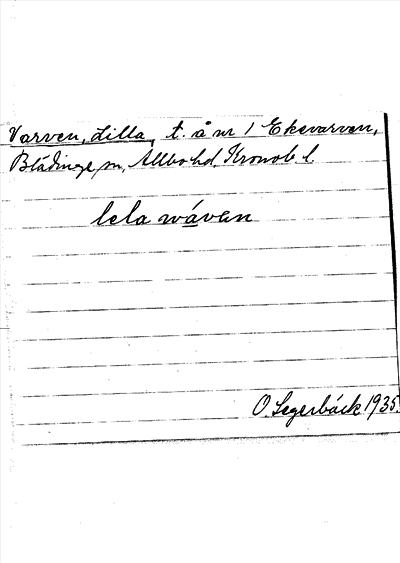 Varven, Lilla, t. å nr 1 Ekevarven,
Blädinge sn, Allbo hd, Kronob l.
lela wáven
O Segerbäck 1935.